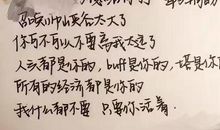 召唤师峡谷太大了
你可不可以不要离我太远了
人头都是你的,buff是你的,塔是你的
所有的经济都是你的
我什么都不要 只要你活着.